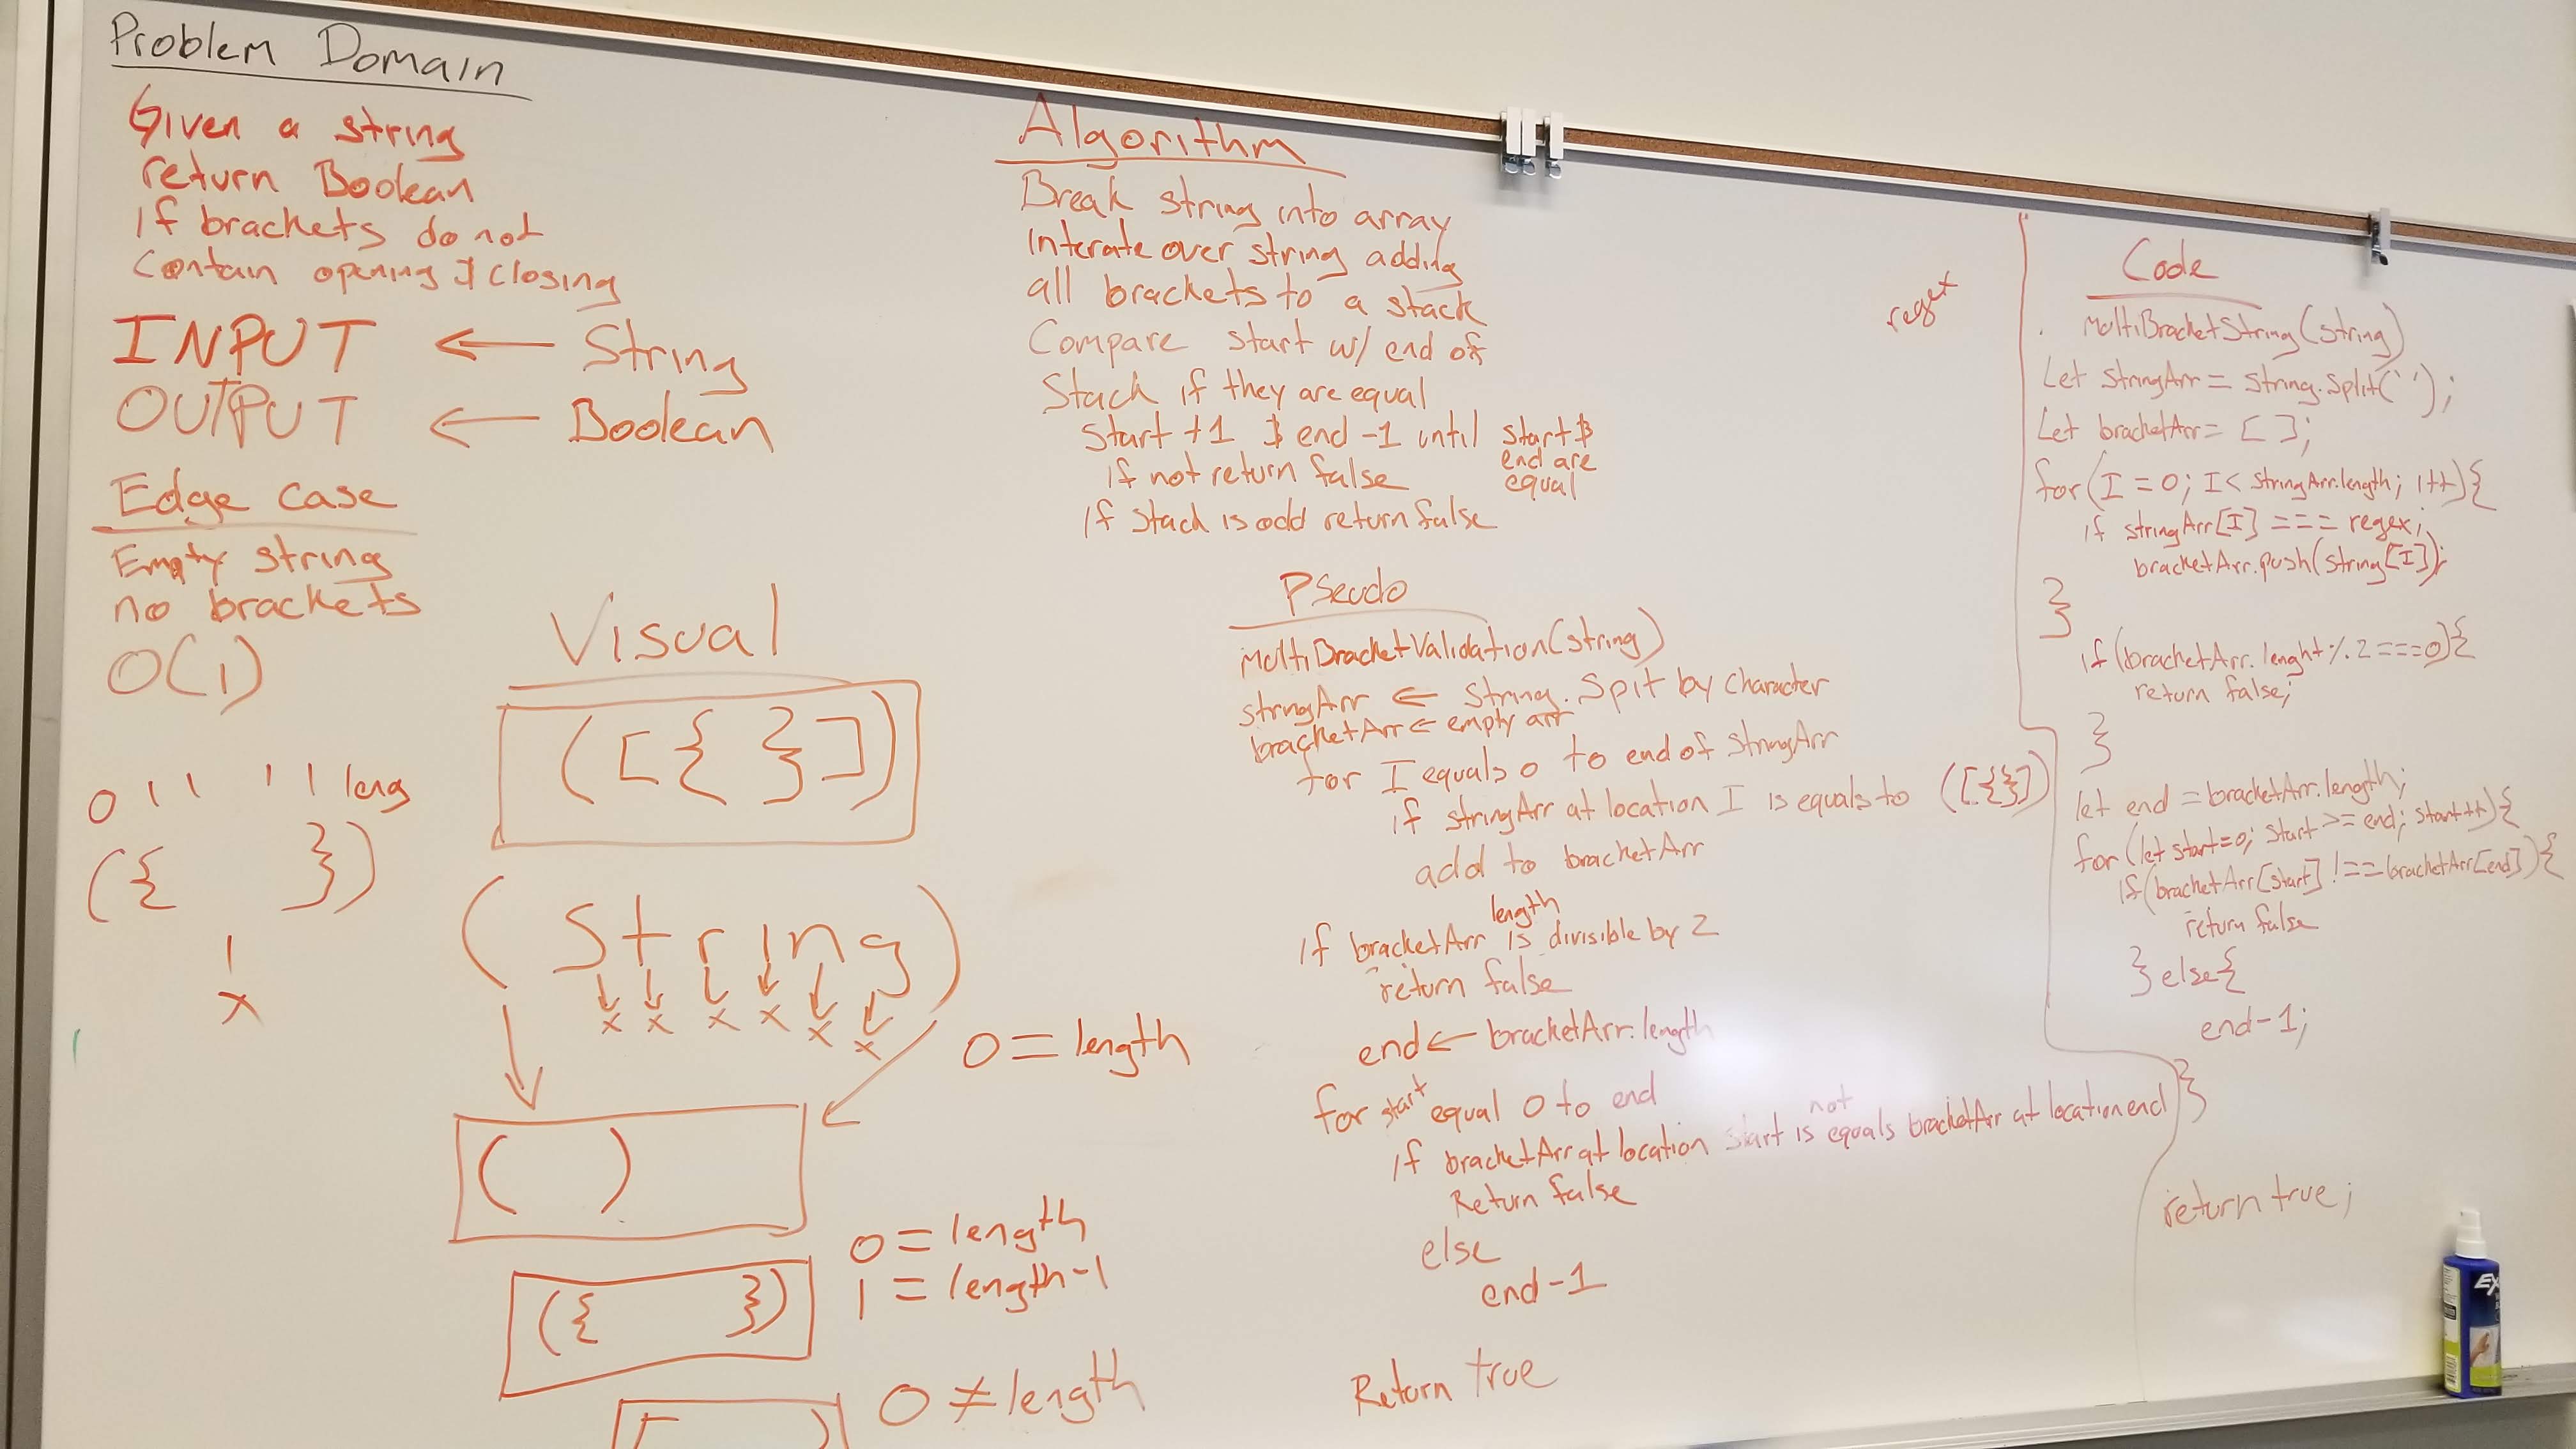 Problem Domain
Given a string
return Boolean
if brackets do not
Contain opening & closing
INPUT ← String
OUTPUT ← Boolean
Edge Case
Empty string
no brackets
O(1)
0 1 1 1 1 leng
({ })
1
x
Visual
([{ }])
(String)
x x x x x x
0 = length
( )
0 = length
1 = length-1
({ })
0 ≠ length
[ )
Algorithm
Break string into array
Interate over string adding
all brackets to a stack
Compare start w/ end of
Stack if they are equal
start +1 & end -1 until start &
end are
equal
if not return false
If stack is odd return false
Pseudo
MultiBracketValidation(string)
stringArr ← string.Spit by character
bracketArr ← empty arr
for I equals 0 to end of stringArr
if stringArr at location I is equals to ([{}])
add to bracketArr
length
if bracketArr is divisible by 2
return false
end ← bracketArr.length
for start equal 0 to end
not
if bracketArr at location start is equals bracketArr at location end
Return false
else
end-1
Return true
regex
Code
MultiBracketString(string)
Let stringArr = string.split(' ');
Let bracketArr = [ ];
for(I = 0; I < stringArr.length; i++){
if stringArr[I] === regex;
bracketArr.push(string[I]);
}
if(bracketArr.lenght % 2 === 0){
return false;
}
let end = bracketArr.length;
for(let start=0; start >= end; start++){
if(bracketArr[start] !== bracketArr[end]){
return false
} else{
end-1;
}
return true;
EX